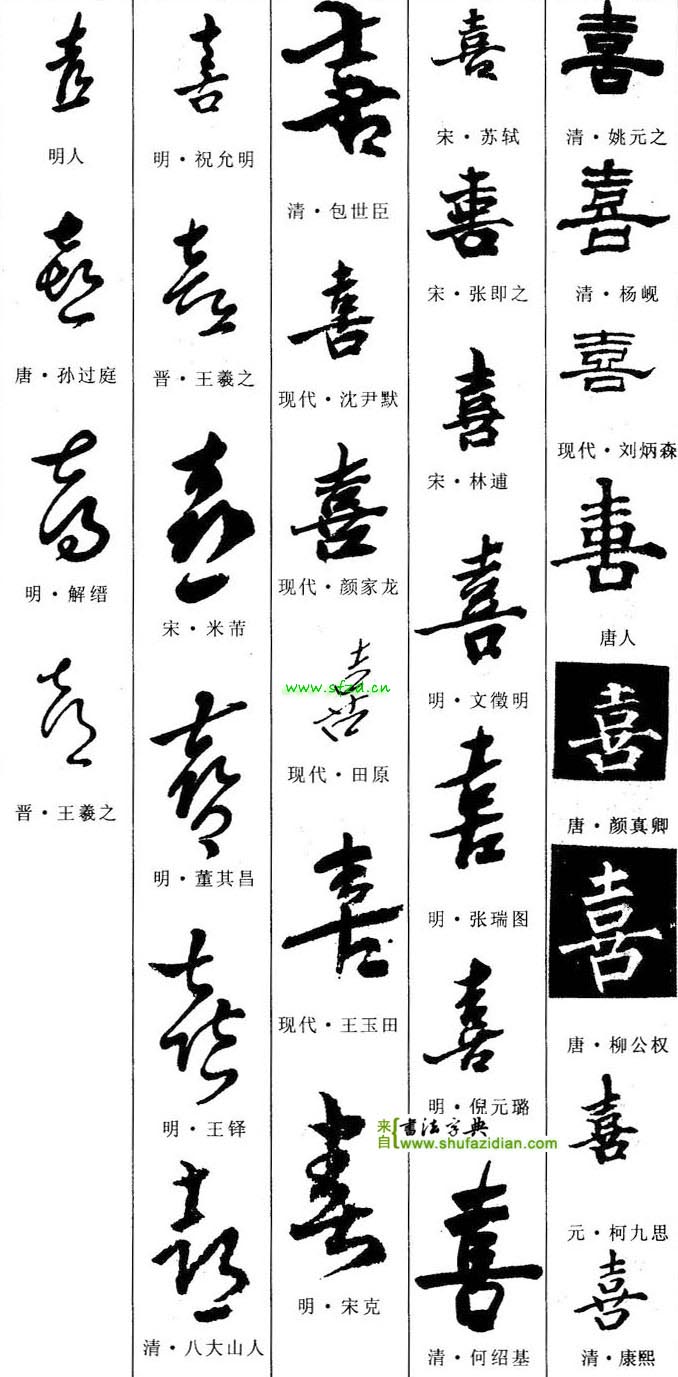 喜
清·姚元之
喜
清·杨岘
喜
现代·刘炳森
喜
唐人
喜
唐·颜真卿
喜
唐·柳公权
喜
元·柯九思
喜
清·康熙
喜
宋·苏轼
喜
宋·张即之
喜
宋·林逋
喜
明·文徵明
喜
明·张瑞图
喜
明·倪元璐
来自{書法字典
www.shufazidian.com
喜
清·何绍基
喜
清·包世臣
喜
现代·沈尹默
喜
现代·颜家龙
www.sfzd.cn
喜
现代·田原
喜
现代·王玉田
喜
明·宋克
喜
明·祝允明
喜
晋·王羲之
喜
宋·米芾
喜
明·董其昌
喜
明·王铎
喜
清·八大山人
喜
明人
喜
唐·孙过庭
喜
明·解缙
喜
晋·王羲之